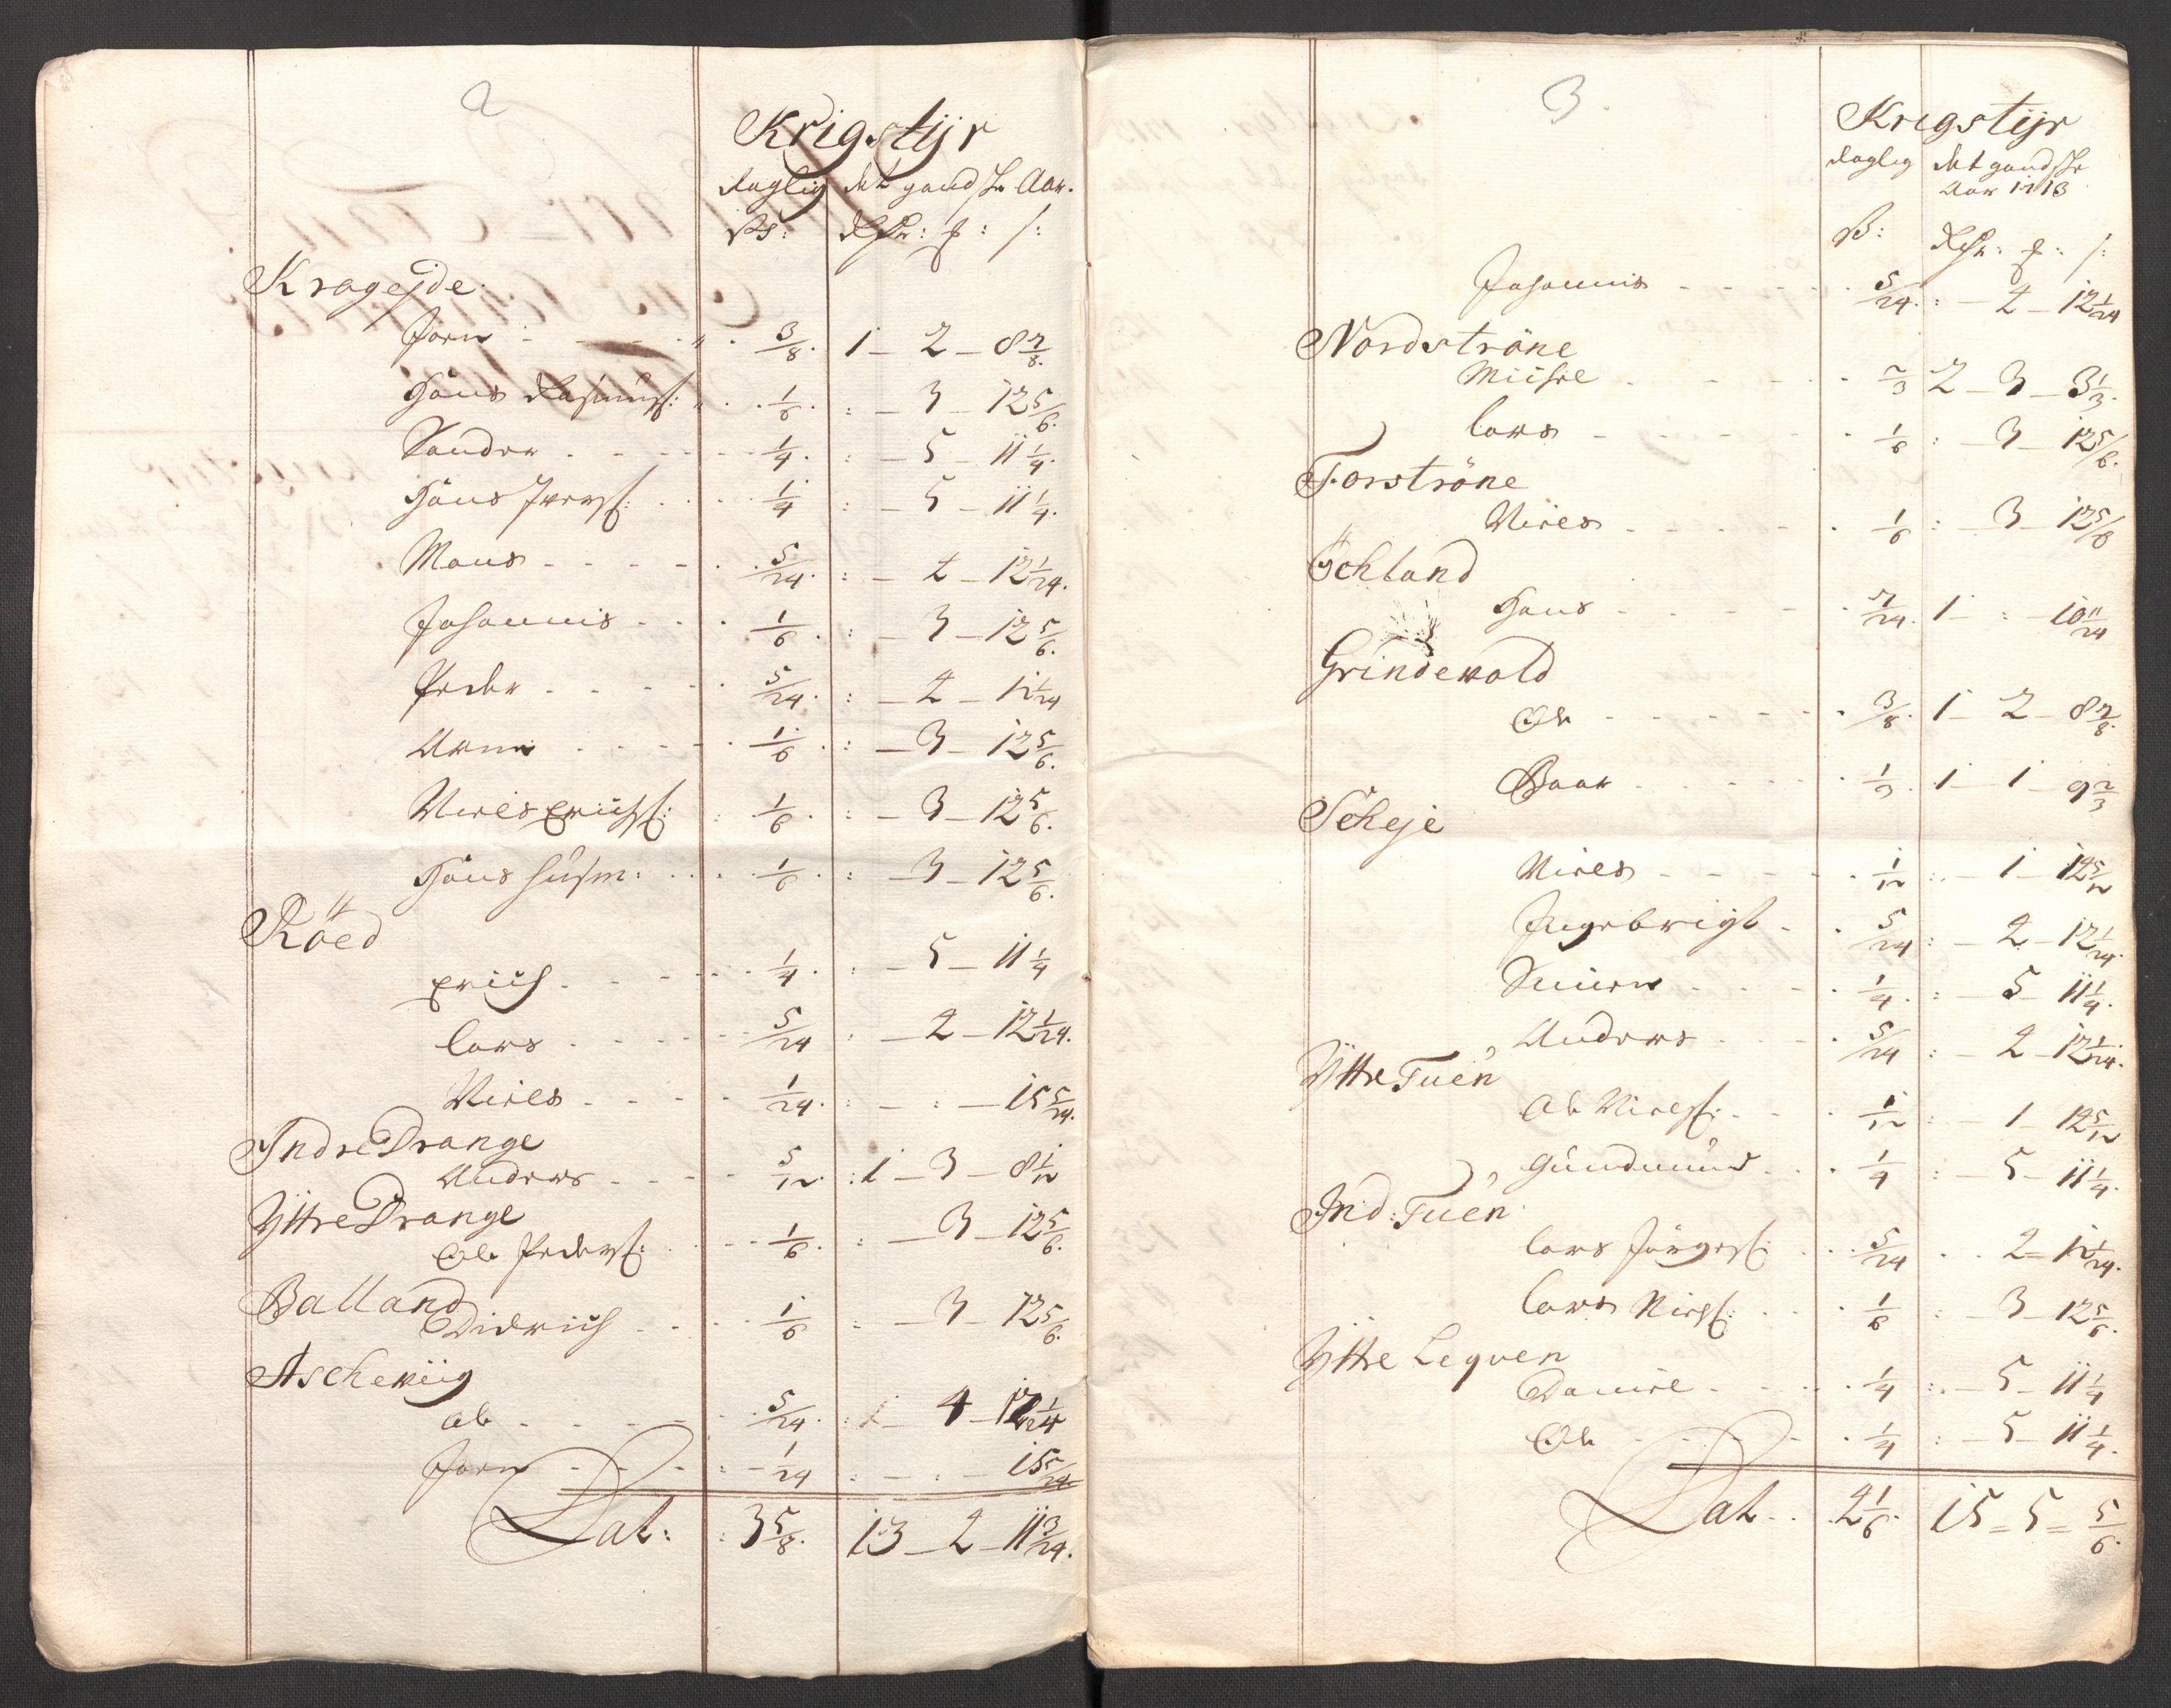 2
Krigstijr
daglig det gandske Aar.
ß: Rdr: ℔: s:
Kragejde
Jorn - - - - 3/8. 1 - 2 - 8 7/8.
Hans Rasmus: 1/6. : - 3 - 12 5/6.
Sander - - - - 1/4. : - 5 - 11 1/4.
Hans Iversß: 1/4 : - 5 - 11 1/4.
Mons - - - - 5/24. : - 4 - 12 1/24.
Johannis - - - 1/6. : - 3 - 12 5/6.
Peder - - - - 5/24. : - 4 - 12 1/24
Arne - - - - 1/6. : - 3 - 12 5/6.
Niels Erichß: 1/6. : - 3 - 12 5/6.
Hans husm: 1/6. : - 3 - 12 5/6.
Röed
Erich - - - 1/4. : - 5 - 11 1/4
Lars - - - - 5/24 : - 4 - 12 1/24.
Niels - - - - 1/24. : - : - 15 5/24.
Indre Drange
Anders - - - - 5/12. : 1 - 3 - 8 1/12
Yttre Drange
Ole Pedersß: 1/6. : - 3 - 12 5/6.
Balland
Didrich - - - 1/6 : - 3 - 12 5/6.
Ascheviig
Ole - - - - 5/24. : - 4 - 12 1/24
Jorn - - - - 1/24 : - : - 15 5/24
Lat: 3 5/8. 13 - 2 - 11 3/24.
3.
Krigstijr
daglig det gandske
Aar 1713
ß: Rdr: ℔: s:
Johannis - - - - 5/24. : - 4 - 12 1/24
Nordströne
Michel - - - - 2/3 2 - 3 - 3 1/3.
Lars - - - - 1/6 : - 3 - 12 5/6.
Forströne
Niels - - - - 1/6 : - 3 - 12 5/6
Öchland
Hans - - - - 7/24. 1 - : - 10 11/24
Grindevold
Ole - - - - 3/8. 1 - 2 - 8 7/8.
Baar - - - - 1/3. 1 - 1 - 9 2/3
Scheje
Niels - - - - 1/12 : - 1 - 14 5/12
Ingebrigt - - 5/24 : - 4 - 12 1/24.
Simen - - - - 1/4. : - 5 - 11 1/4.
Anders - - - 5/24 : - 4 - 12 1/24.
Yttre Tuen
Ole Nielsß: 1/12 : - 1 - 14 5/12
Gundmund - - 1/4 : - 5 - 11 1/4.
Ind: Tuen
Lars Jörgesß: 5/24 . . 4 - 12 1/24.
Lars Nielsß: 1/6 : 3 - 12 5/6.
Yttre Leqven
Daniel - - - - 1/4 : - 5 - 11 1/4
Ole - - - - 1/4 : - 5 - 11 1/4.
Lat - - 4 1/6. 15 - 5 - 5/6.